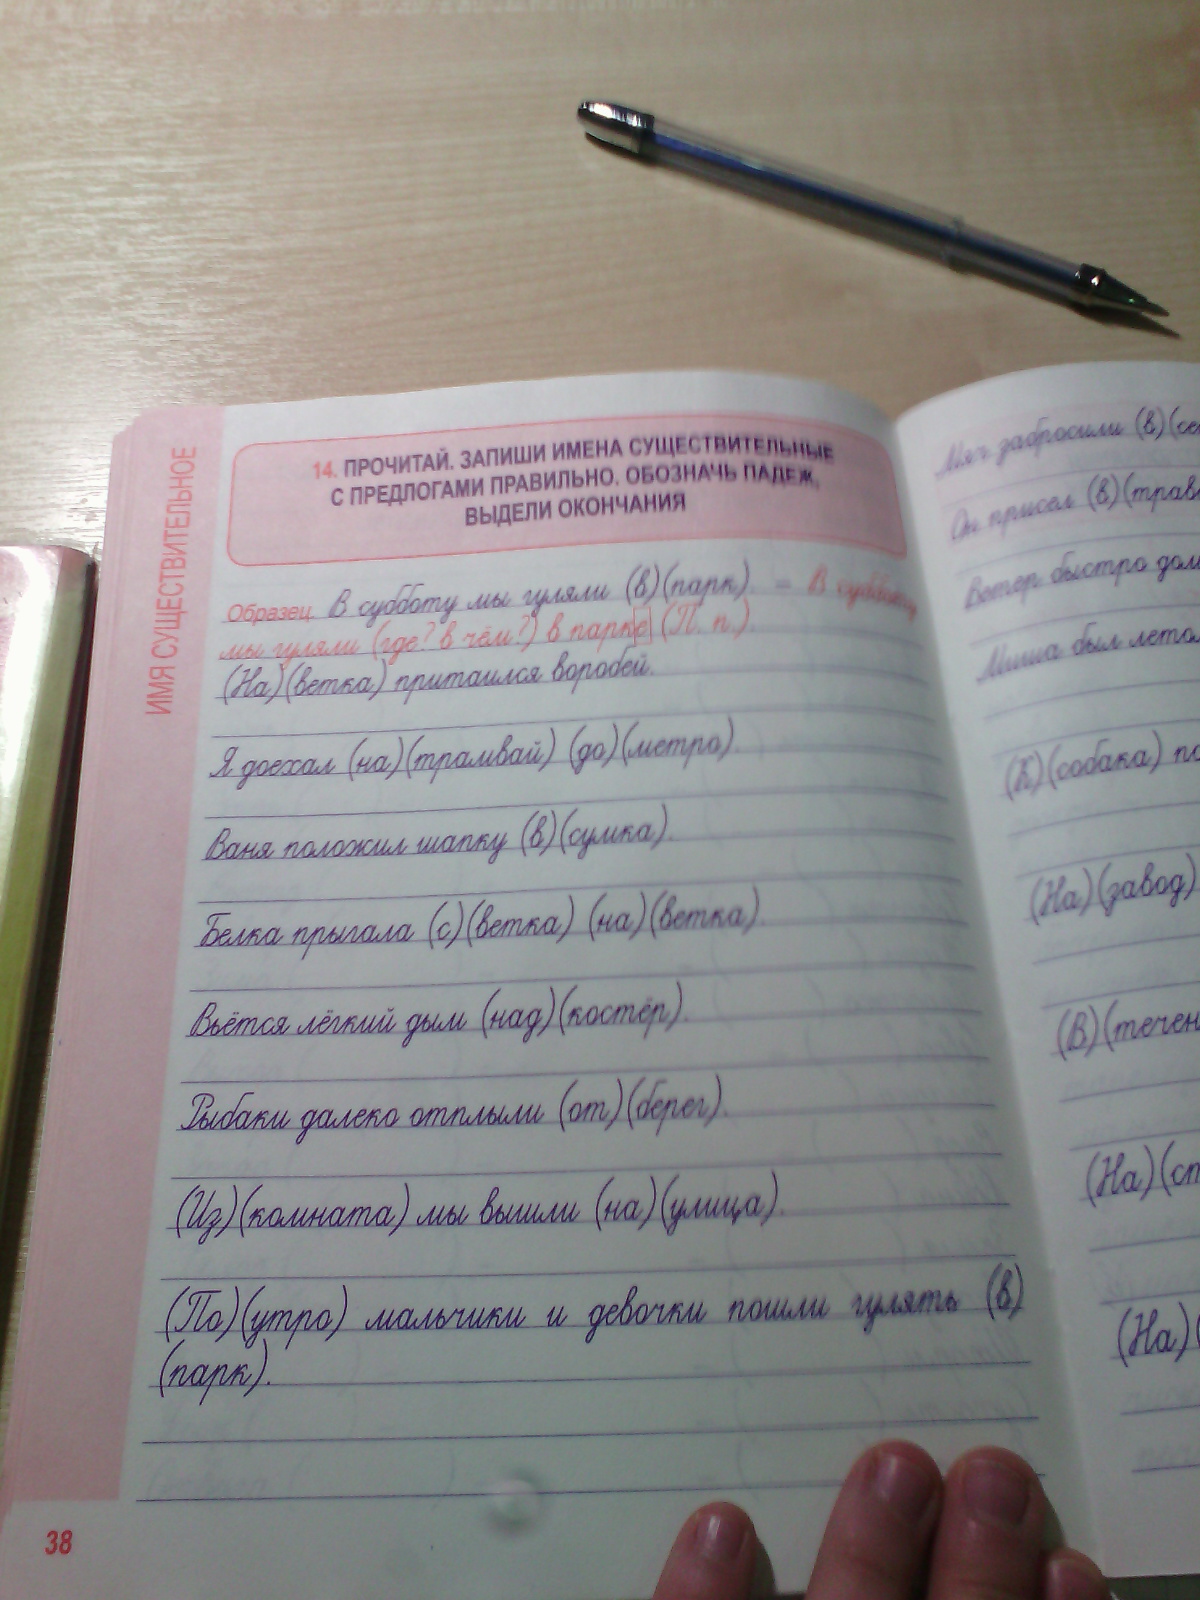 ИМЯ СУЩЕСТВИТЕЛЬНОЕ
14. ПРОЧИТАЙ. ЗАПИШИ ИМЕНА СУЩЕСТВИТЕЛЬНЫЕ
С ПРЕДЛОГАМИ ПРАВИЛЬНО. ОБОЗНАЧЬ ПАДЕЖ,
ВЫДЕЛИ ОКОНЧАНИЯ
Образец. В субботу мы гуляли (в)(парк). – В субботу
мы гуляли (где? в чём?) в парке (П. п.).
(На)(ветка) притаился воробей.
Я доехал (на)(трамвай) (до)(метро).
Ваня положил шапку (в)(сумка).
Белка прыгала (с)(ветка) (на)(ветка).
Вьётся лёгкий дым (над)(костёр).
Рыбаки далеко отплыли (от)(берег).
(Из)(комната) мы вышли (на)(улица).
(По)(утро) мальчики и девочки пошли гулять (в)
(парк).
38
Мяч забросили (в)
Он присел (в)
Ветер быстро
Миша был
(К)(собака)
(На)(завод)
(В)
(На)
(На)